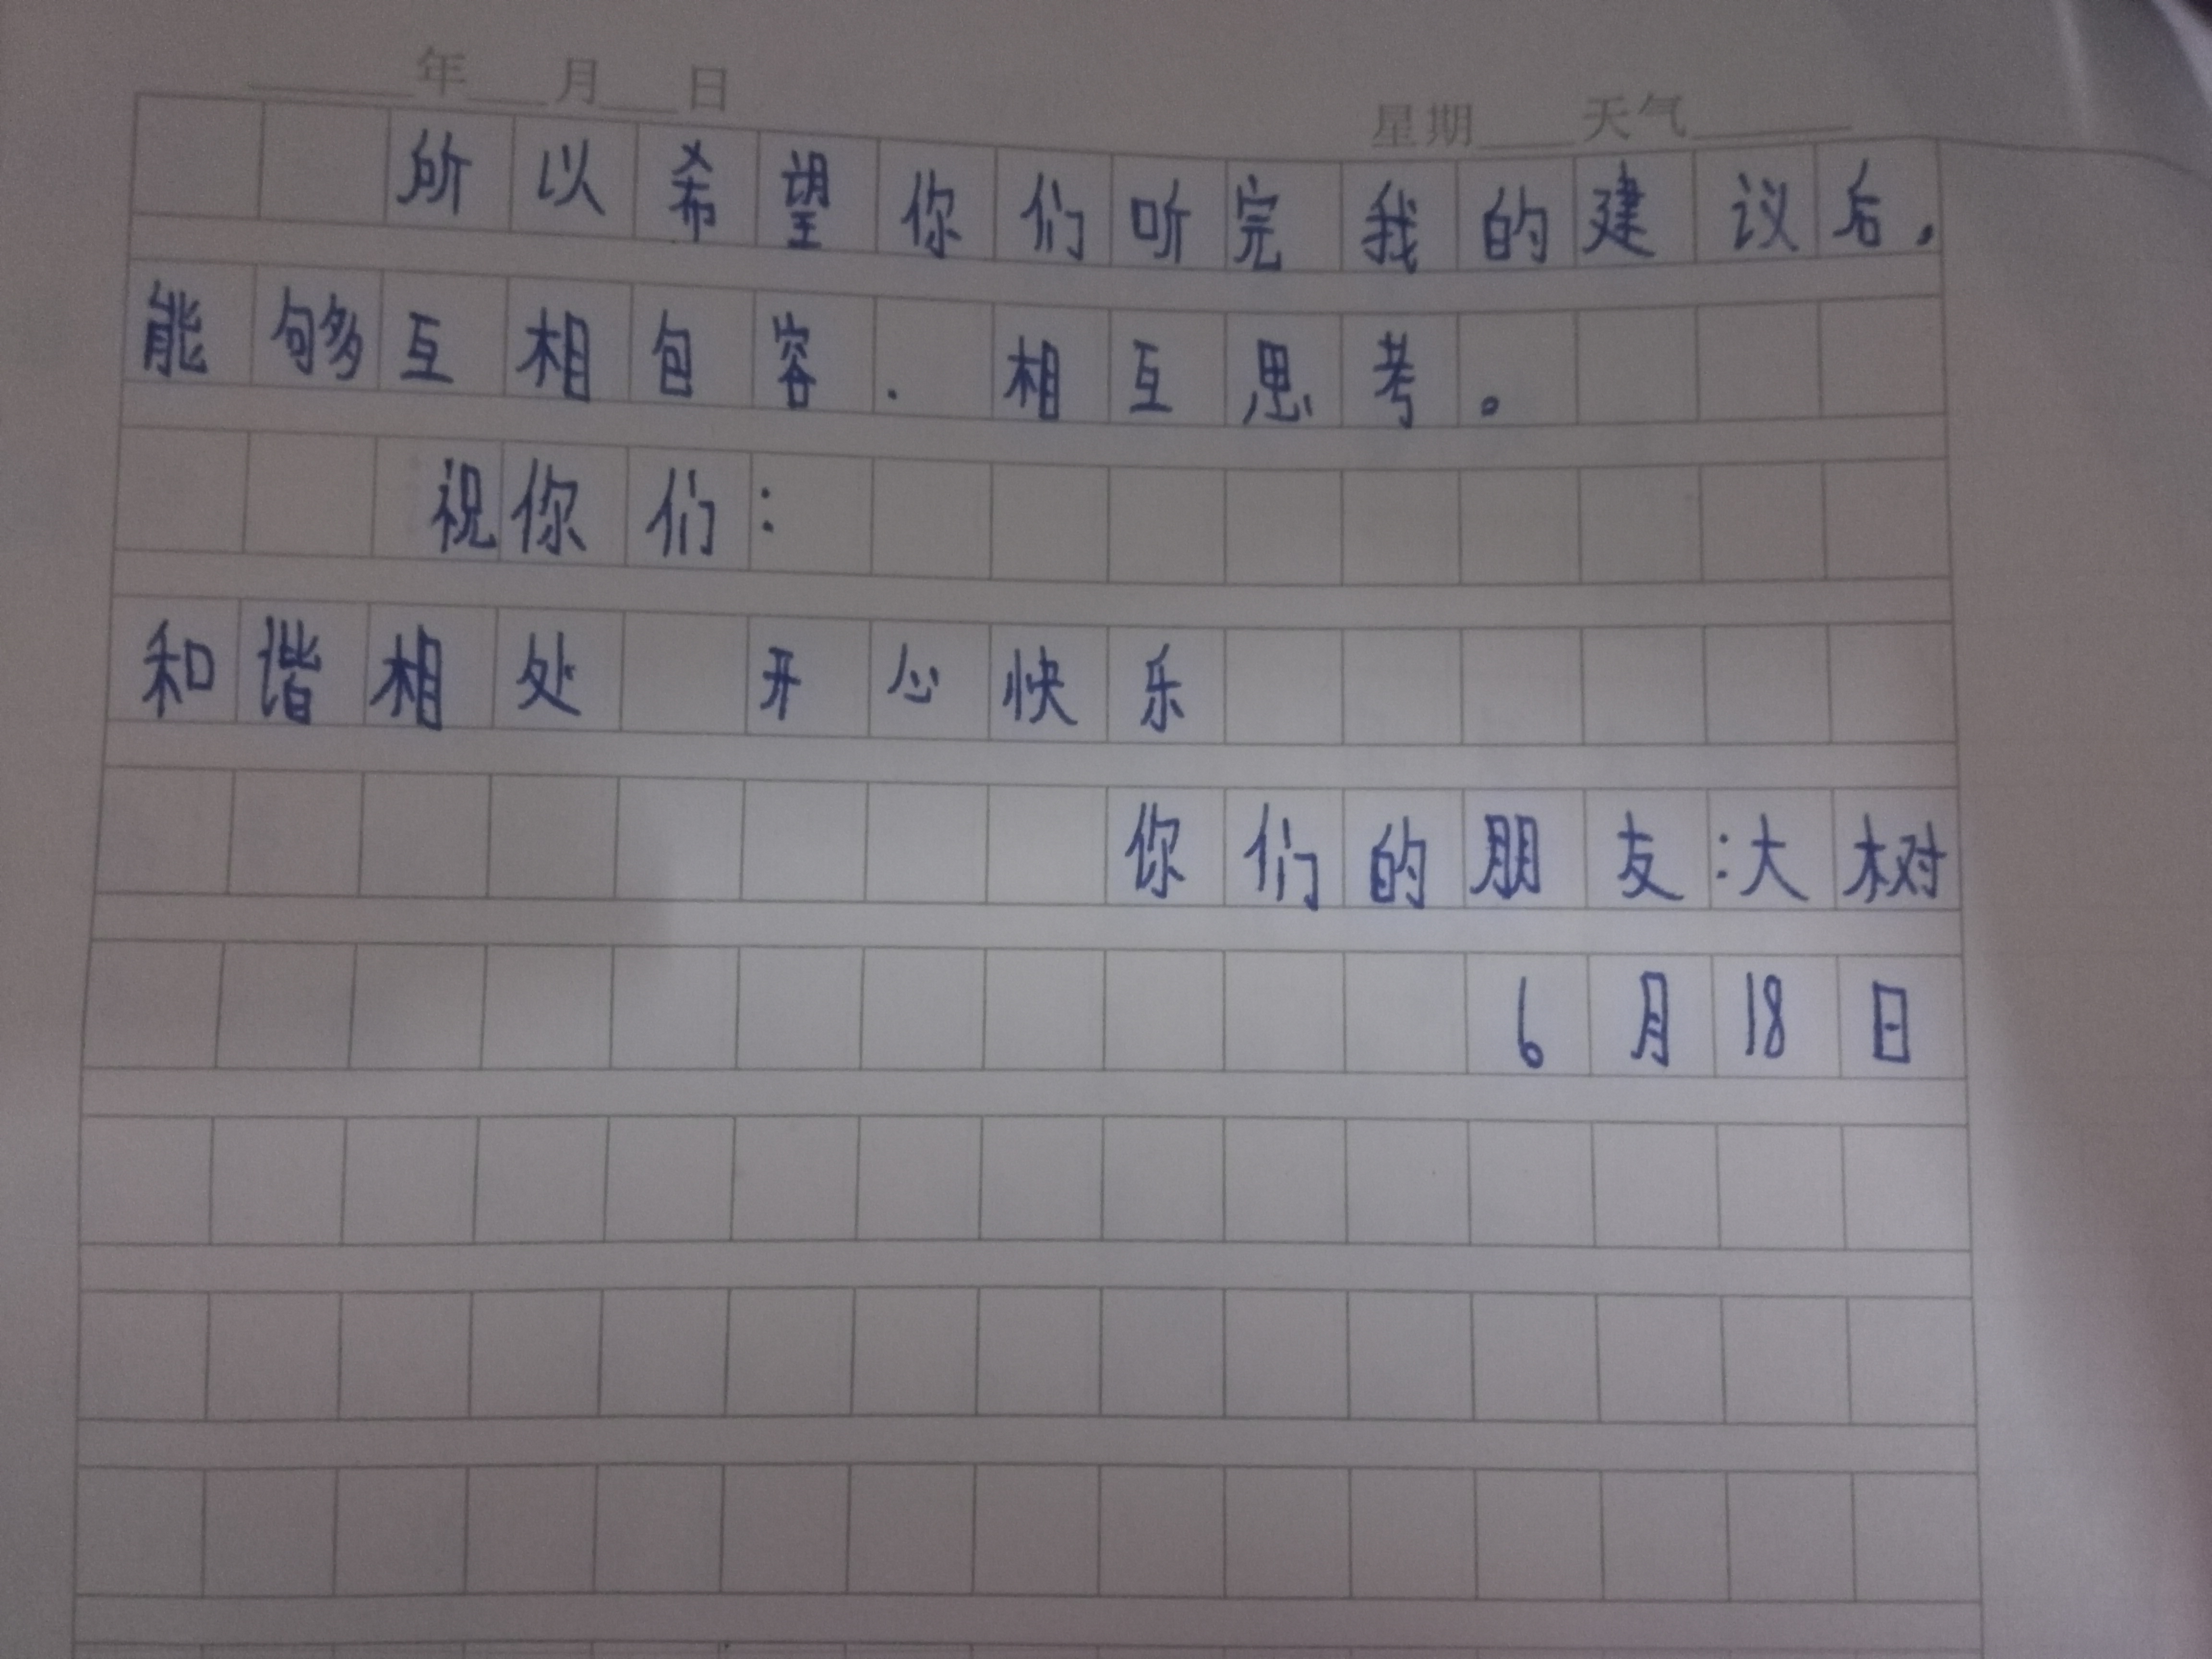 年 月 日 星期 天气
所以希望你们听完我的建议后，
能够互相包容.相互思考。
祝你们：
和谐相处 开心快乐
你们的朋友：大树
6月18日